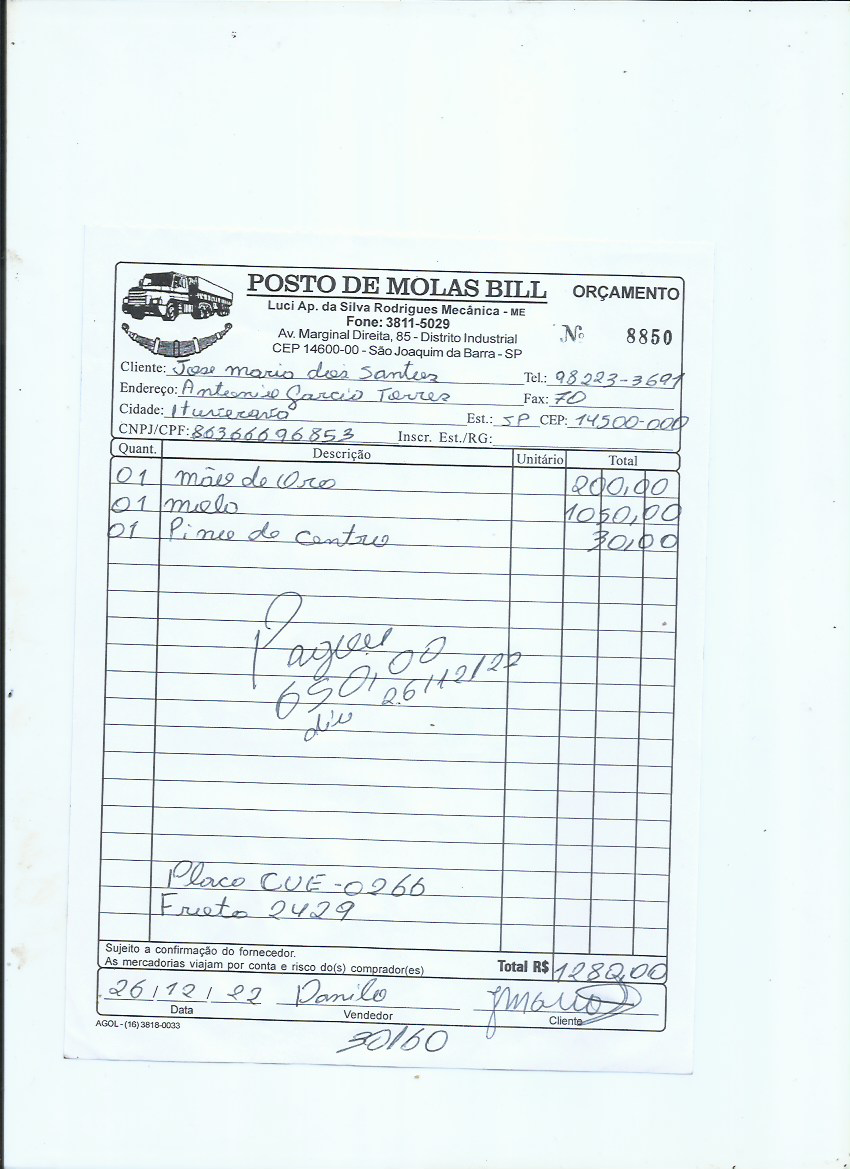 POSTO DE MOLAS BILL
ORÇAMENTO
Luci Ap. da Silva Rodrigues Mecânica - ME
Fone: 3811-5029
Av. Marginal Direita, 85 - Distrito Industrial
CEP 14600-00 - São Joaquim da Barra - SP
Nº 8850
Cliente: Jose maria dos Santos Tel.: 98223-3691
Endereço: Antonio Garcia Torres Fax: 70
Cidade: Ituverava Est.: SP CEP: 14500-000
CNPJ/CPF: 86366696853 Inscr. Est./RG:
Quant. Descrição Unitário Total
01 mão de Oro 200,00
01 mola 1050,00
01 Pino de centro 30,00
Paguei
650,00 26/12/22
Placa CUE-0266
Frota 2429
Sujeito a confirmação do fornecedor.
As mercadorias viajam por conta e risco do(s) comprador(es)
Total R$ 1280,00
26/12/22 Danilo JMario
Data Vendedor Cliente
AGOL - (16) 3818-0033
30/60